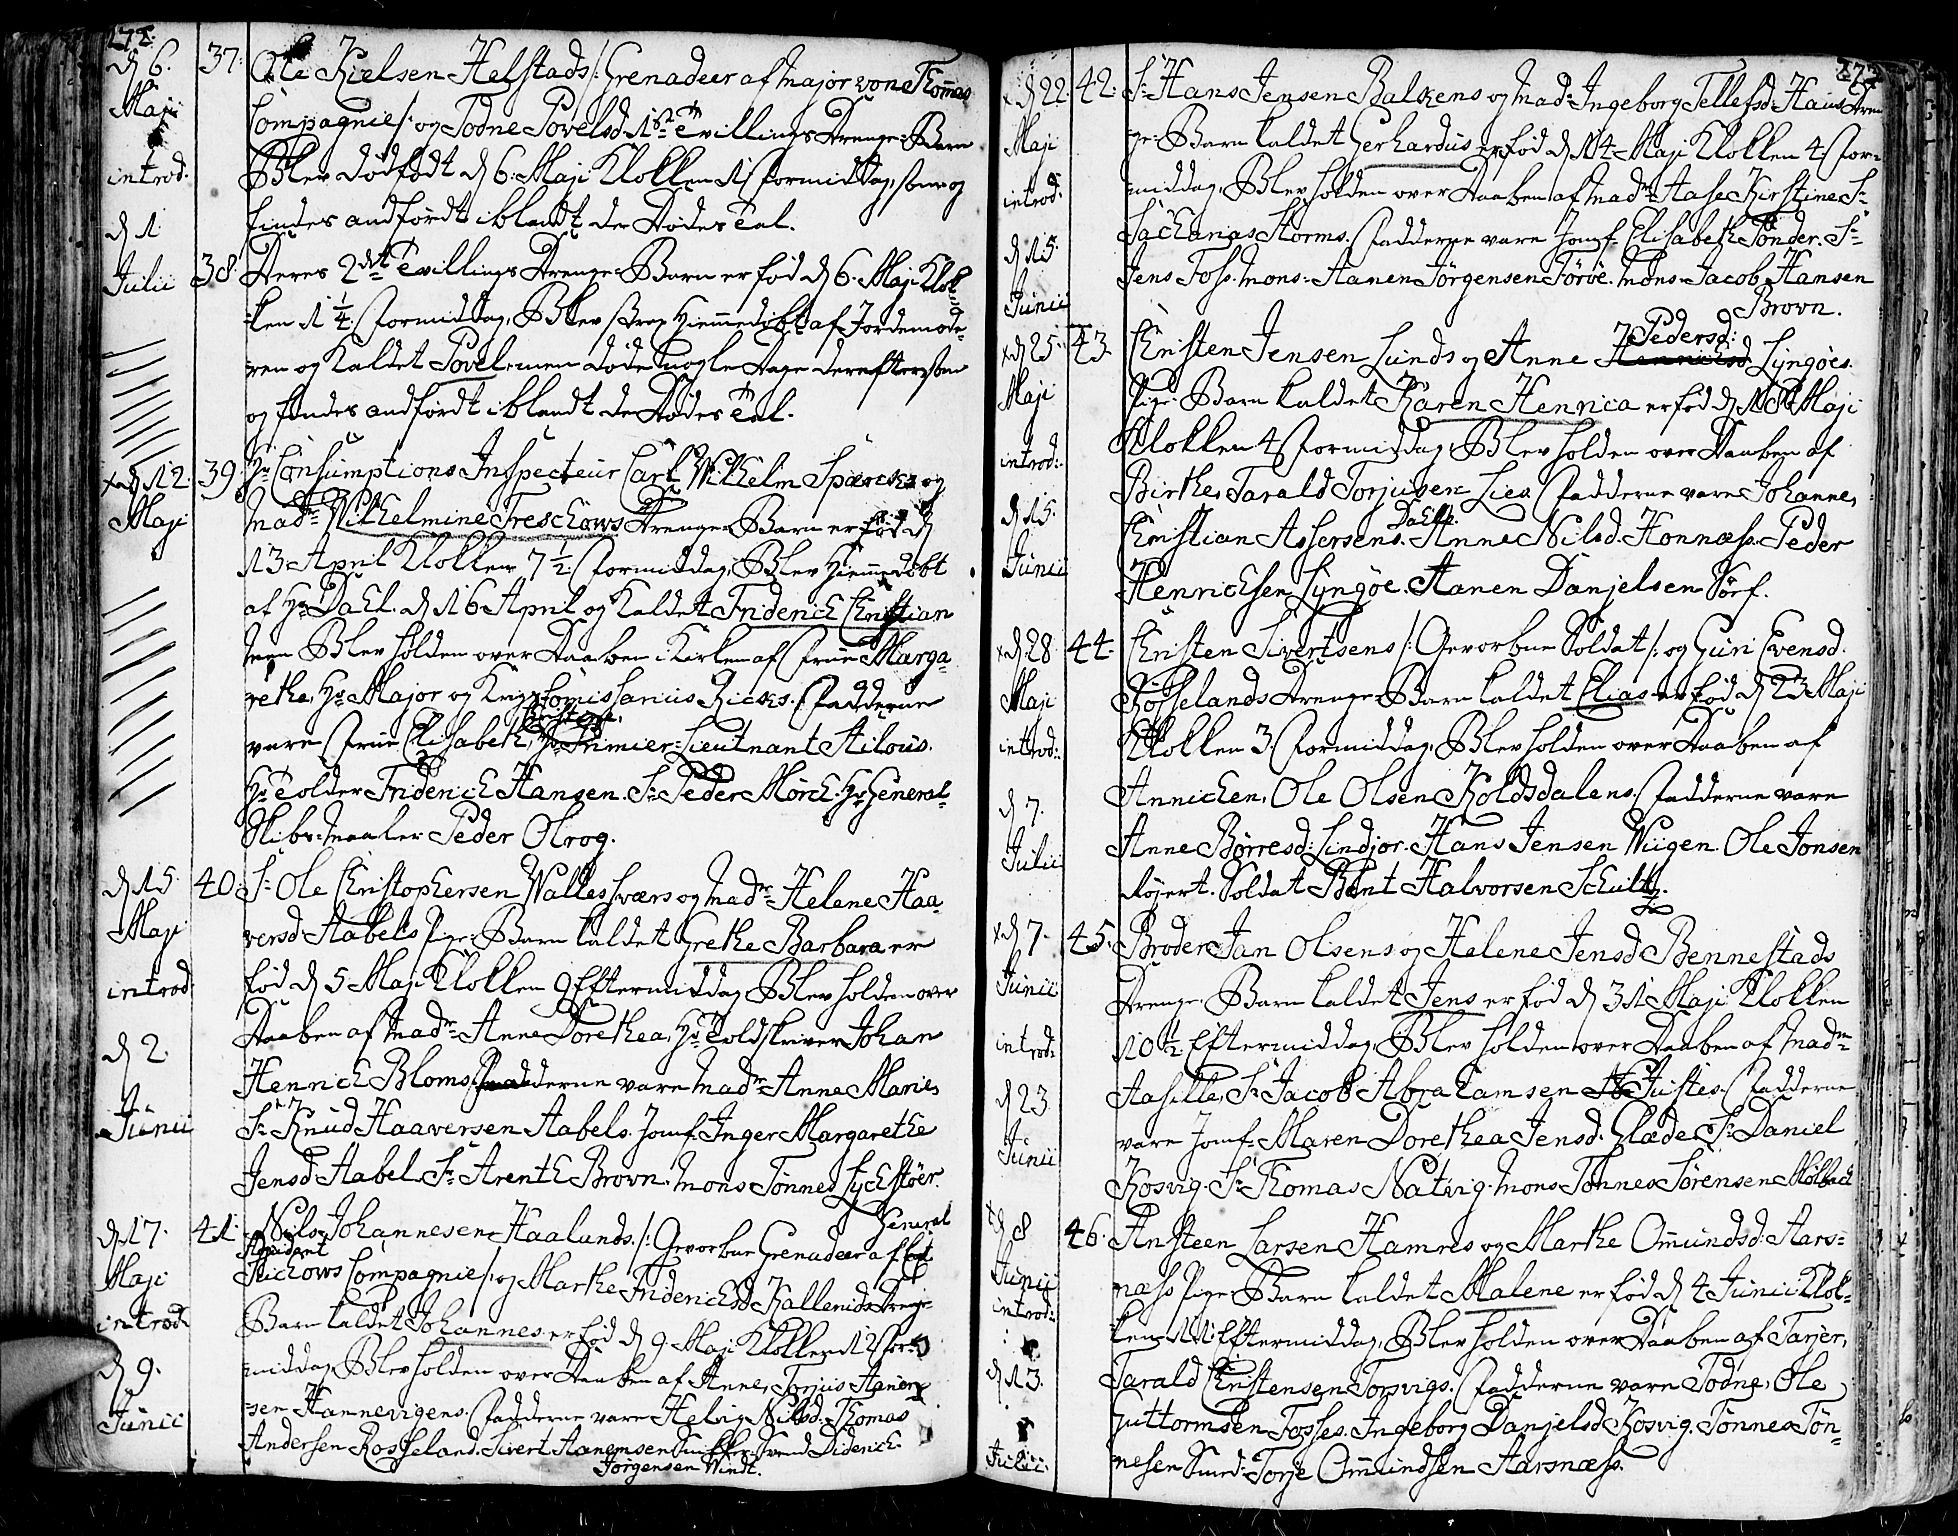 272.
d 6. Maji introd: d 1 Julii
37. Ole Kielsen Helstads /: Grenadeer af Major von Thomas
Compagnie :/ og Todne Povelsd 1ste Tvillings Drenge-Barn
Blev dødfødt d 6. Maji Klokken 1 formiddag, som og
findes andførdt iblandt de Dødes Tal.
38. Deres 2det Tvillings Drenge-Barn er fød d 6. Maji Klok
ken 1 1/4 formiddag, Blev strax Hiemmedøbt af Jordemode-
ren og Kaldet Povel, men døde nogle Dage derefter som
og findes andførdt iblandt de Dødes Tal.
x d 12. Maji
39. Hr Consumptions Inspecteur Carl Wilhelm Spärcks og
Mad= Wilhelmine Treschows Drenge Barn er fød d
13 April Klokken 7 1/2 formiddag, Blev Hiemmedøbt
af Hr Dahl. d 16 April og Kaldet Friderich Christian
men Blev holden over Daaben i Kirken af Frue Marga-
rethe, Hr Major og Krigs Comissarius Ricks. Fadderne
vare Frue Elisabeth, Hr Primier-Lieutnant Ailous.
Hr Tolder Friderich Hansen. Sr Peder Mörch. Hr General-
Skibs-Maaler Peder Olrog.
d 15 Maji introd: d 2. Junii
40. Sr Ole Christophersen Wallesværs og Mad= Helene Haa-
versd Aabels Pige-Barn kaldet Grethe Barbara er
fød d 5 Maji Klokken 9 Eftermiddag Blev holden over
Daaben af Mad= Anne Dorethea, Hr Toldskriver Johan
Henrich Bloms. Fadderne vare Mad= Anne Maries
Sr Knud Haaversen Aabels. Jomf. Inger Margarethe
Jensd Aabel. Sr Arenth Brovn. Mons Tönnes Lyckstöer.
d 17. Maji introd: d 9. Junii
41. Nils Johannesen Haalunds. /: Gevorben Grenadeer af General
Stichows Compagnie :/ og Marthe Friderichsd Kallevids Drenge
Barn kaldet Johannes er fød d 9 Maji Klokken 12 for-
middag Blev holden over Daaben af Anne, Torjus Aanen-
sen Hannevigens. Fadderne vare Helvig Nilsd. Thomas
Andersen Rosseland. Sivert Aanensen Svend Diderich
Jörgensen Windt.
273
x d 22. Maji introd: d 15. Junii
42. Sr Hans Jensen Balkens og Mad= Ingeborg Tellefsd: Hans Dren
ge-Barn kaldet Gerhardus er fød d 14 Maji Klokken 4 for-
middag, Blev holden over Daaben af Mad= Aase Kirstine Sr
Sacharias Storms. Fadderne vare Jomf= Elisabeth Tönder. Sr
Jens Foss. Mons: Aanen Jörgensen Töröe. Mons: Jacob Hansen
Brovn.
x d 25. Maji introd: d 15. Junii
43. Christen Jensen Lunds og Anne Pedersd: Lyngöes
Pige-Barn kaldet Karen Henrica er fød d 18 Maji
Klokken 4 formiddag, Blev holden over Daaben af
Birthe, Tarald Torjusen Lies. Fadderne vare Johanne,
Christian Assersens. Anne Nilsd. Honnæss. Peder
Henrichsen Lyngöe. Aanen Danjelsen Sörf.
x d 28 Maji introd: d 7. Julii
44. Christen Sivertsens /: Gevorben Soldat /: og Guri Evensd.
Röisselands Drenge-Barn kaldet Elias er fød d 23 Maji
Klokken 3. formiddag, Blev holden over Daaben af
Annichen, Ole Olsen Koldsdalens. Fadderne vare
Anne Börresd: Lindjor. Hans Jensen Wiigen. Ole Jonsen
Röjert. Soldat Bent Halvorsen Schultz.
x d 7. Junii introd: d 23 Junii
45. Broder Jan Olsens og Helene Jensd Bennestads
Drenge-Barn kaldet Jens er fød d 31 Maji Klokken
10 1/2 Eftermiddag, Blev holden over Daaben af Mad=
Aasille, Sr Jacob Abrahamsen Justes. Fadderne
vare Jomf= Maren Dorethea Jensd. Glade. Sr Daniel
Kosvig. Sr Thomas Natvig. Mons Tönnes Sörensen Mölback
d 8 Junii introd: d 13. Julii.
46. Ansteen Larsen Hamres og Marthe Omundsd: Aars-
næss Pige-Barn kaldet Malene er fød d 4 Junii Klok-
ken 11. Eftermiddag, Blev holden over Daaben af Tarjer,
Tarald Christensen Torsvigs. Fadderne vare Todne, Ole
Guttormsen Fosses. Ingeborg Danjelsd Kosvig. Tönnes Tön-
nesen Smed. Torje Omundsen Aarsnæss.